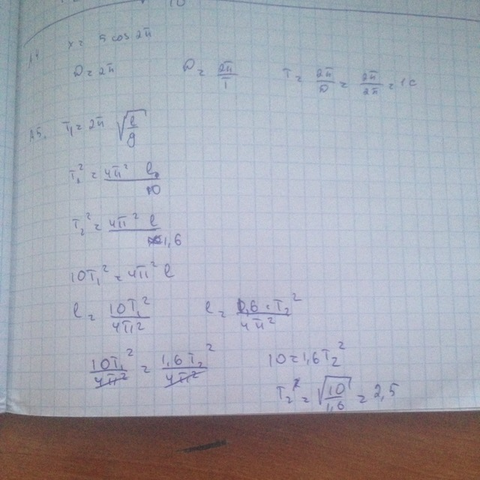 10
A4 x = 5 cos 2π
D = 2π D = 2π/T T = 2π/D = 2π/2π = 1 c
A5. T₁ = 2π √(l/g)
T₁² = 4π² l/10
T₂² = 4π² l/1,6
10T₁² = 4π² l
l = 10T₁²/4π² l = 1,6 · T₂²/4π²
10T₁²/4π² = 1,6T₂²/4π² 10 = 1,6T₂²
T₂² = √(10/1,6) = 2,5